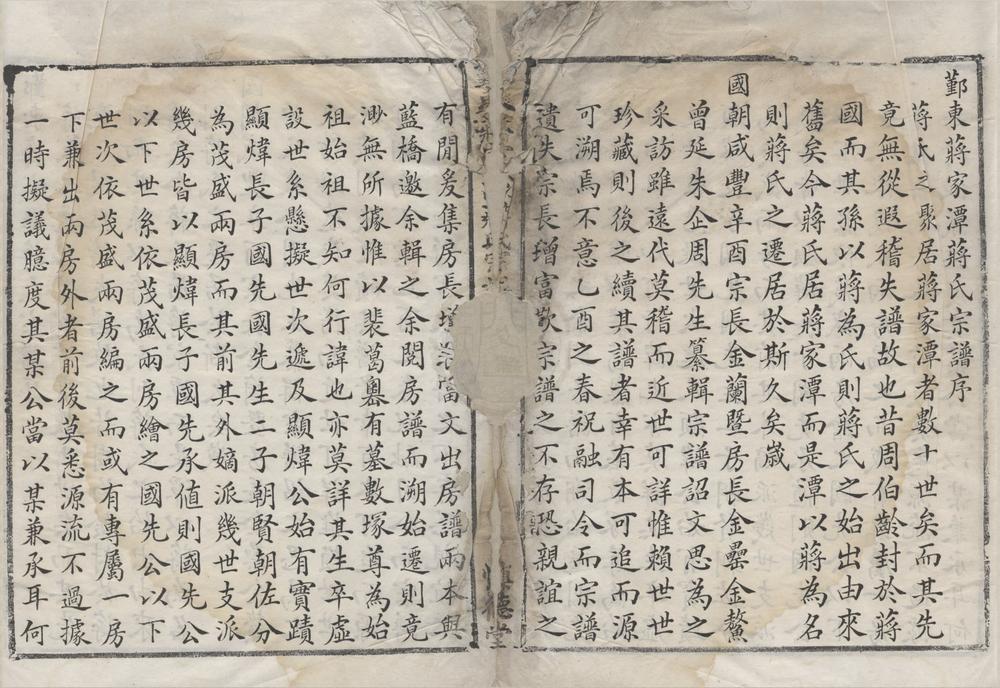 鄞東蔣家潭蔣氏宗譜序
蔣氏之聚居蔣家潭者數十世矣而其先
竟無從遐稽失譜故也昔周伯齡封於蔣
國而其孫以蔣為氏則蔣氏之始出由來
舊矣今蔣氏居蔣家潭而是潭以蔣為名
則蔣氏之遷居於斯久矣歲
國朝咸豐辛酉宗長金蘭暨房長金罍金鰲
曾延朱企周先生纂輯宗譜詔文思為之
采訪雖遠代莫稽而近世可詳惟賴世世
珍藏則後之續其譜者幸有本可追而源
可溯焉不意乙酉之春祝融司令而宗譜
遺失宗長增富歎宗譜之不存恐親誼之
德堂
有間爰集房長富文出房譜兩本與
藍橋邀余輯之余閱房譜而溯始遷則竟
渺無所據惟以裴葛嶴有墓數塚尊為始
祖始祖不知何行諱也亦莫詳其生卒虛
設世系懸擬世次遞及顯煒公始有實蹟
顯煒長子國先國先生二子朝賢朝佐分
為茂盛兩房而其前其外嫡派幾世支派
幾房皆以顯煒長子國先承值則國先公
以下世系依茂盛兩房繪之國先公以下
世次依茂盛兩房編之而或有專屬一房
下兼出兩房外者前後莫悉源流不過據
一時擬議臆度其某公當以某兼承耳何